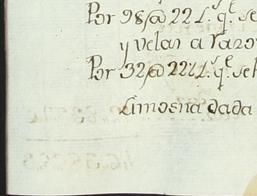 Por 98@ 22 L.s q.e se
y velas a razo
Por 32@ 22 L.s q.e se h
Limosna dada